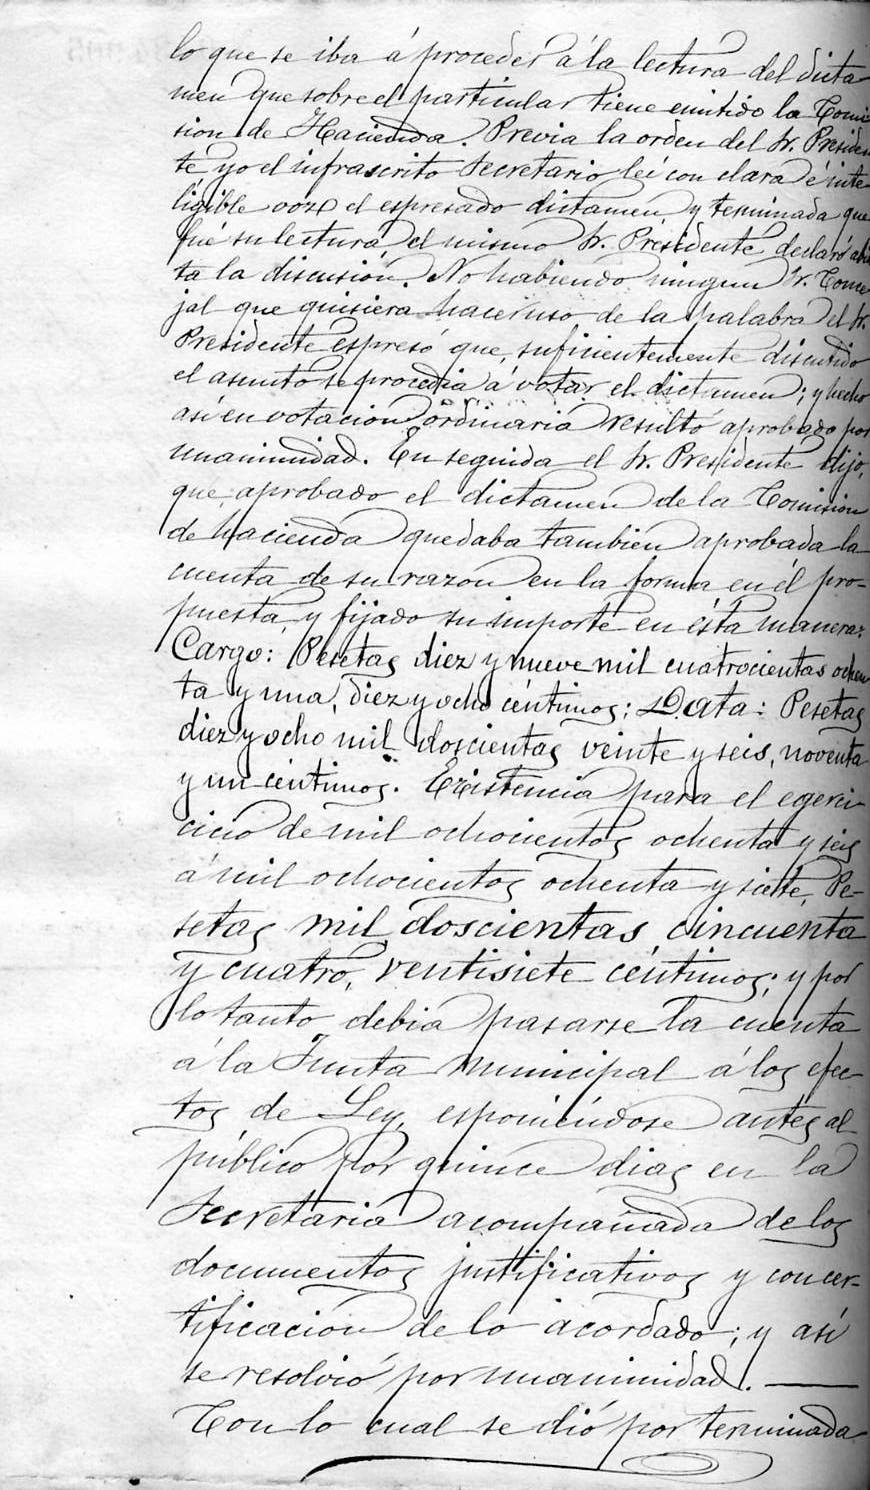 lo que se iba á proceder á la lectura del dicta
men que sobre el particular tiene emitido la Comi
sion de Hacienda. Previa la orden del Sr. Presiden
te yo el infrascrito Secretario leí con clara é inte
ligible voz el espresado dictamen y terminada que
fué su lectura el mismo Sr. Presidente declaró abier
ta la discusión. No habiendo ningun Sr. Conce
jal que quisiera hacer uso de la palabra el Sr.
Presidente espresó que, suficientemente discutido
el asunto se procedia á votar el dictamen; y hecho
así en votacion ordinaria resultó aprobado por
unanimidad. En seguida el Sr. Presidente dijo,
que, aprobado el dictamen de la Comisión
de hacienda quedaba tambien aprobada la
cuenta de su razon en la forma en él pro-
puesta y fijado su importe en ésta manera:
Cargo: Pesetas diez y nueve mil cuatrocientas ochen
ta y una, diez y ocho céntimos; Data: Pesetas
diez y ocho mil doscientas veinte y seis, noventa
y un céntimos. Existencia para el egerci-
cicio de mil ochocientos ochenta y seis
á mil ochocientos ochenta y siete, Pe-
setas mil doscientas cincuenta
y cuatro, ventisiete céntimos; y por
lo tanto debia pasarse la cuenta
á la Junta municipal á los efec-
tos de Ley, esponiéndose antes al
público por quince dias en la
Secretaria acompañada de los
documentos justificativos y con cer-
tificacion de lo acordado; y así
se resolvió por unanimidad.
Con lo cual se dió por terminada